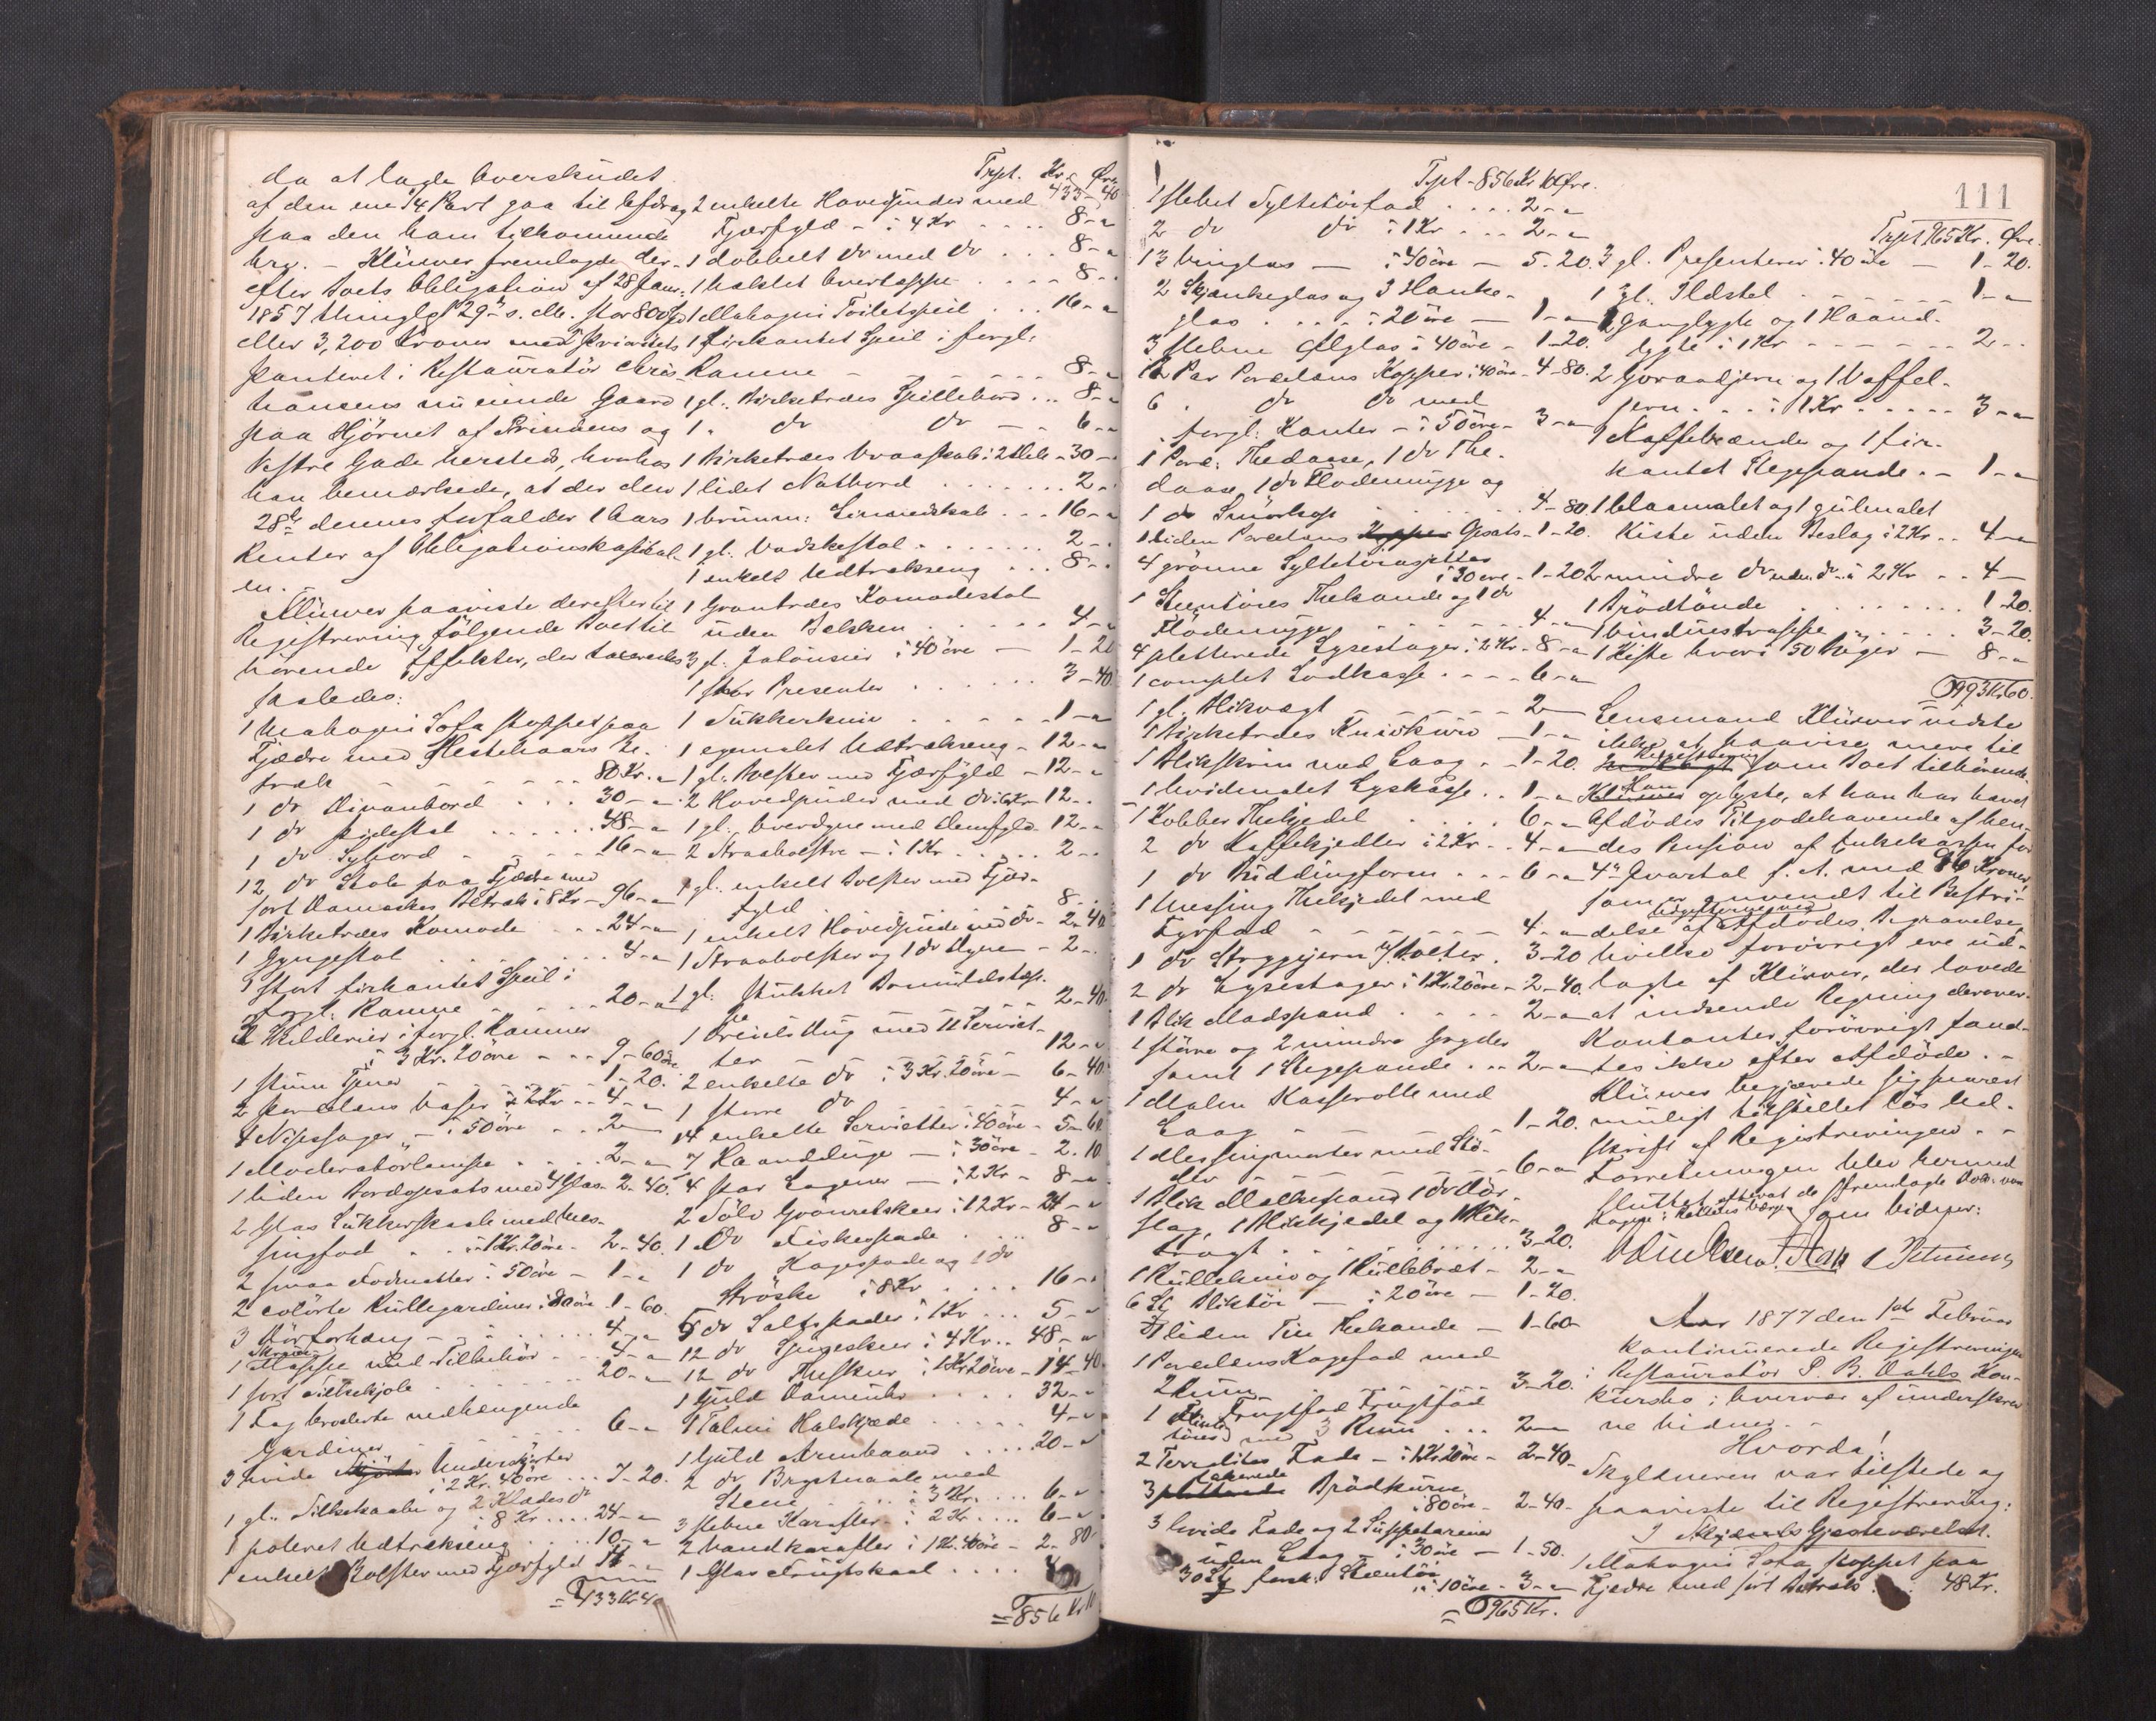 da at lade Overskudet
af den ene 1/4 Part gaa til Afdrag
paa den ham tilkommende
Arv. - Klüwer fremlagde der-
efter Boets Obligation af 28 Janr.
1857 thinglæst 29de s. M. stor 800 Spd
eller 3,200 Kroner med Prioritets
panteret i Restauratør Chris-
hansens nu eiende Gaard
paa Hjørnet af Prindsens og
Vestre Gade hersteds, hvorhos
han bemærkede, at der den
28de dennes forfalder 1 Aars
Renter af Obligationskapital-
en. -
Klüwer paaviste derefter til
Registrering følgende Boet til-
hørende Effekter, der taxeredes
saaledes:
1 Mahogni Sofa stoppet paa
Fjædre med Hestehaars Be-
træk - - - 80 Kr. "
1 do Divanbord . . . 30 - "
1 do Pidestal . . . . . 48 - "
1 do Sybord - - - - 16 - "
12 do Stole paa Fjædre med
sort Damaskes Betræk i 8 Kr - 96 - "
1 Birketræes Komode . . . 24 - "
1 Gyngestol . . . . . 4 - "
1 stort firkantet Speil i
forgl. Ramme - - - - 20 - "
3 Malderier i forgl. Rammer
i 3 Kr. 20 øre - - - 9 - 60 øre
1 stum Tjener - - - - 1 - 20.
2 Porcelains Vaser i 2 Kr - - 4 - "
4 Nipssager " - i 50 øre - - 2 -
1 Moderatørlampe . . . . 2 - "
1 liden Bordopsats med 4 Glas - 2 - 40.
2 Glas Sukkerskaale med Mes-
singfod . . i 1 Kr. 20 øre - 2 - 40.
2 smaa Fodmatter i 50 øre - 1 - "
2 colørte Rullegardiner i 80 øre - 1 - 60.
3 Dørforhæng - - - . . . . 4 - "
1 Mappe med Tilbehør . . . 4 - "
1 sort Silkekjole . . . . . 20 - "
1 Fag broderte nedhængende
Gardiner . . . . . 6 - "
3 hvide Underskjørter
i 2 Kr. 40 øre . . . 7 - 20.
1 gl. Silkekaabe og 2 Klædes do
i 8 Kr . . . . 24 - "
1 poleret Udtrækseng . . . 10 - "
1 enkelt Bolster med Fjærfyld
= 433 Kr 40
Trpt. Kr. Øre
433 - 40
2 enkelte Hovedpuder med
Fjærfyld - i 4 Kr . . . . 8 - "
1 dobbelt do med do . . . 8 - "
1 hæklet Overtæppe . . . . 8 - "
1 Mahogni Toiletspeil . . . 16 - "
1 firkantet Speil i forgl.
Ramme - - - - - - 8 - "
1 gl. Birketræes Spillebord . . . 8 - "
1 " do do - - 6 - "
1 Birketræes Vraaskab i 2 Dele - 30 - "
1 lidet Natbord . . . . . . . 2 - "
1 brunm. Linnedskab . . . 16 - "
1 gl. Vadskestol . . . . . . . 2 - "
1 enkelt Udtrækseng . . . 8 - "
1 Grantræes Komodestol
uden Bækken . . . . . . 4 - "
3 st. Jalousier i 40 øre - 1 - 20
1 stor Presenter . . . . . . 3 - 40
1 Sukkerkniv . . . . . 1 - "
1 egemalet Udtrækseng - 12 - "
1 gl. Bolster med Fjærfyld - 12 - "
2 Hovedpuder med do i 6 Kr - 12 - "
1 gl. Overdyne med Dunfyld - 12 - "
2 Straabolstre - i 1 Kr . . . . 2 - "
1 gl. enkelt Bolster med Fjær-
fyld . . . . . . . . 8 - "
1 enkelt Hovedpude med do - 2 - 40
1 Straabolster og 1 do Dyne - 2 - "
1 gl. stukket Bomuldstæp-
pe - - - - - 2 - 40.
1 Dreils Dug med 11 Serviet-
ter - - - - - - - 12 - "
2 enkelte do i 3 Kr. 20 øre - 6 - 40
1 større do - - - - - 4 - "
14 enkelte Servietter i 40 øre - 5 - 60
7 Haandduge - i 30 øre - 2. 10
4 Par Lagener - i 2 Kr - 8 - "
2 Sølv Grønretskeer i 12 Kr - 24 - "
1 do Fiskespade . . . . 8 - "
1 do Kagespade og 1 do
Strøske i 8 Kr . . . . 16 - "
5 do Saltspader i 1 Kr . . . 5 - "
12 do Spiseskeer i 4 Kr . . 48 - "
12 do Theskeer i 1 Kr 20 øre - 14 - 40.
1 Guld Dameuhr . . . . 32 - "
1 Talmi Halskjæde . . . . . 4 - "
1 Guld Armbaand . . . . 20 - "
2 do Brystnaale med
Stene . . . . i 3 Kr. . . . 6 - "
3 slebne Karafler - i 2 Kr . . . 6 - "
2 Vandkarafler i 1 Kr. 40 øre - 2 - 80
1 Glas Frugtskaal . . . .
= 856 Kr 10
111
Trpt - 856 Kr 10 Øre.
1 slebet Syltetøifad . . . . 2 - "
2 do do i 1 Kr . . . 2 - "
13 Vinglas - i 40 øre - 5. 20.
2 Skjænkeglas og 3 Hanke-
glas . . . . i 20 øre - 1 - "
3 slebne Ølglas i 40 øre - 1 - 20.
12 Par Porcelæns Kopper i 40 øre - 4 - 80.
6 . do do med
forgl. Kanter - i 50 øre - 3 - "
1 Porc. Thedaase, 1 do The-
daase, 1 do Flødemugge og
1 do Smørkop . . . . . . 4 - 80
1 liden Porcelæns Opsats - 1 - 20.
4 grønne Syltetøiasjetter
i 30 øre - 1 - 20
1 Stentøies Thekande og 1 do
Flødemugge - - - - - 4 - "
4 pletterede Lysestager i 2 Kr - 8 - "
1 complet Lodkasse . . . . 6 - "
1 gl. Blikvægt - - - - - - 2 -
1 Birketræes Knivkurv - 1 - "
1 Blikskrin med Laag . . 1 - 20.
1 hvidmalet Lyskasse . . 1 - "
1 Kobber Thekjedel . . . . 6 - "
2 do Kaffekjedler i 2 Kr . . 4 - "
1 do Buddingform . . . 6 - "
1 Messing Thekjedel med
Fyrfad - - - - - - 4 - "
1 do Strygejern m/Bolter . 3 - 20
2 do Lysestager i 1 Kr. 20 øre - 2 - 40.
1 Blik Madspand . . . . 2 - "
1 større og 2 mindre Gryder
samt 1 Stegepande . . . 2 - "
1 Malm Kasserolle med
Laag - - - - - - 1 - 20.
1 Messingmorter med Stø-
der - - - - - - - 6 - "
1 Blik Melkespand 1 do Dør-
slag, 1 Blikkjedel og 1 Blik-
tragt . . . . . . . . 3 - 20.
1 Rullekniv og 1 Rullebræt - 2 - "
6 St Bliktøi - i 20 øre - 1 - 20.
1 liden Tin Thekande - 1 - 60
1 Porcelæns Kagefad med
2 Rum - - - - - - 3 - 20.
1 Frugtfad
med 3 Rum . . . 2 - "
2 Terralitес Fade - i 1 Kr 20 øre - 2 - 40.
3 lakerede Brødkurve
i 80 øre - 2 - 40 -
3 hvide Fade og 2 Suppeteriner
uden Laag - i 30 øre - 1 - 50.
30 St forsk. Stentøi
i 10 øre - 3 - "
= 965 Kr.
Trpt 965 Kr. Øre.
3 gl. Presenterer i 40 øre - 1 - 20.
1 gl. Ildstel . . - - - - - 1 - "
1 Ganglygte og 1 Haand-
lygte i 1 Kr - - - - - - 2 - -
2 Goraadjern og 1 Vaffel-
jern . . . . i 1 Kr . . . . . 3 - "
1 Kaffebrænder og 1 fir-
kantet Stegepande . - 1 - "
1 blaamalet og 1 gulmalet
Kiste uden Beslag i 2 Kr . . 4 - "
2 mindre do uden do i 2 Kr - - 4 -
1 Brødtønde . . . . . . . . 1 - 20.
1 Vindus trappe . . . . . . 3 - 20.
1 Kiste hvori 50 Bøger - 8 - "
993 Kr 60.
Lensmand Klüwer vidste
ikke at paavise mere til
Registrering som Boet tilhørende.
Han oplyste, at han har hævet
Afdødes Tilgodehavende af hen-
des Pension af Enkekassen for
4de Qvartal f. A. med 96 Kroner
som er anvendt til Bestri-
delse af Udgifterne ved Afdødes Begravelse,
hvilke forøvrigt ere ud-
lagte af Klüwer, der lovede
at indsende Regning derover.
Kontanter forøvrigt fand-
tes ikke efter Afdøde. -
Klüwer begjærede sig snarest
muligt tilstillet løs Ud-
skrift af Registreringen. - -
Forretningen blev hermed
sluttet efterat de fremlagte Dok. var
tagne i Rettens Værge som bidner:
Aar 1877 den 1ste Februar
kontinuerede Registreringen
i Restauratør P. B. Dahls Kon-
kursbo i Overvær af underskrev-
ne Vidner. -
Hvorda!
Skyldneren var tilstede og
paaviste til Registrering:
I Gjæsteværelset.
1 Mahogni Sofa, stoppet paa
Fjædre med sort Betræk . . . 48 Kr.